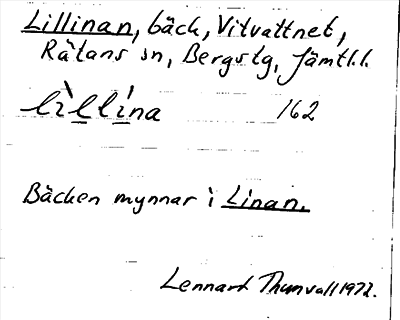 Lillinan, bäck, Vitvattnet,
Rätans sn, Bergs tg, Jämtl. l.
lìllína 162
Bäcken mynnar i Linan.
Lennart Thunvall 1972.